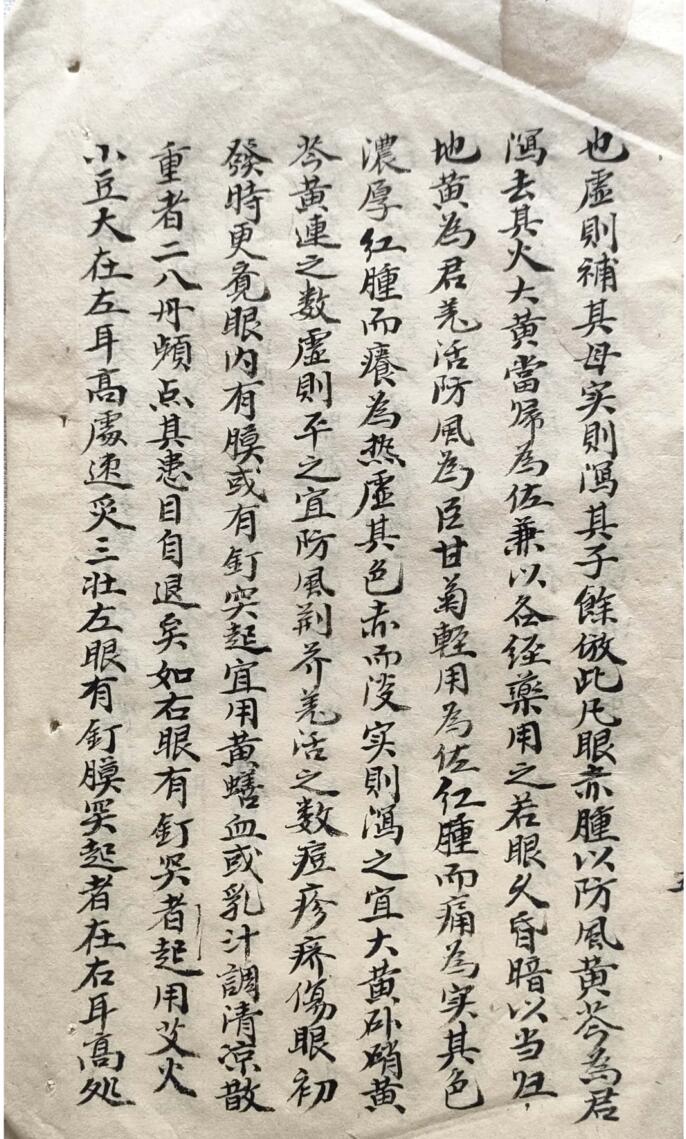 也虛則補其母实則瀉其子餘倣此凡眼赤腫以防風黄芩為君
瀉去其火大黄當歸為佐兼以各经藥用之若眼久昏暗以当归
地黄為君羌活防風為臣甘菊輕用為佐红腫而痛為实其色
濃厚红腫而癢為热虛其色赤而淡实則瀉之宜大黄朴硝黄
芩黄連之数虛則平之宜防風荆芥羌活之数痘疹疥傷眼初
發時更覓眼内有膜或有釘突起宜用黄蟮血或乳汁調清凉散
重者二八丹頻点其患目自退矣如右眼有釘突者起用艾火
小豆大在左耳高處速灸三壮左眼有釘膜突起者在右耳高处